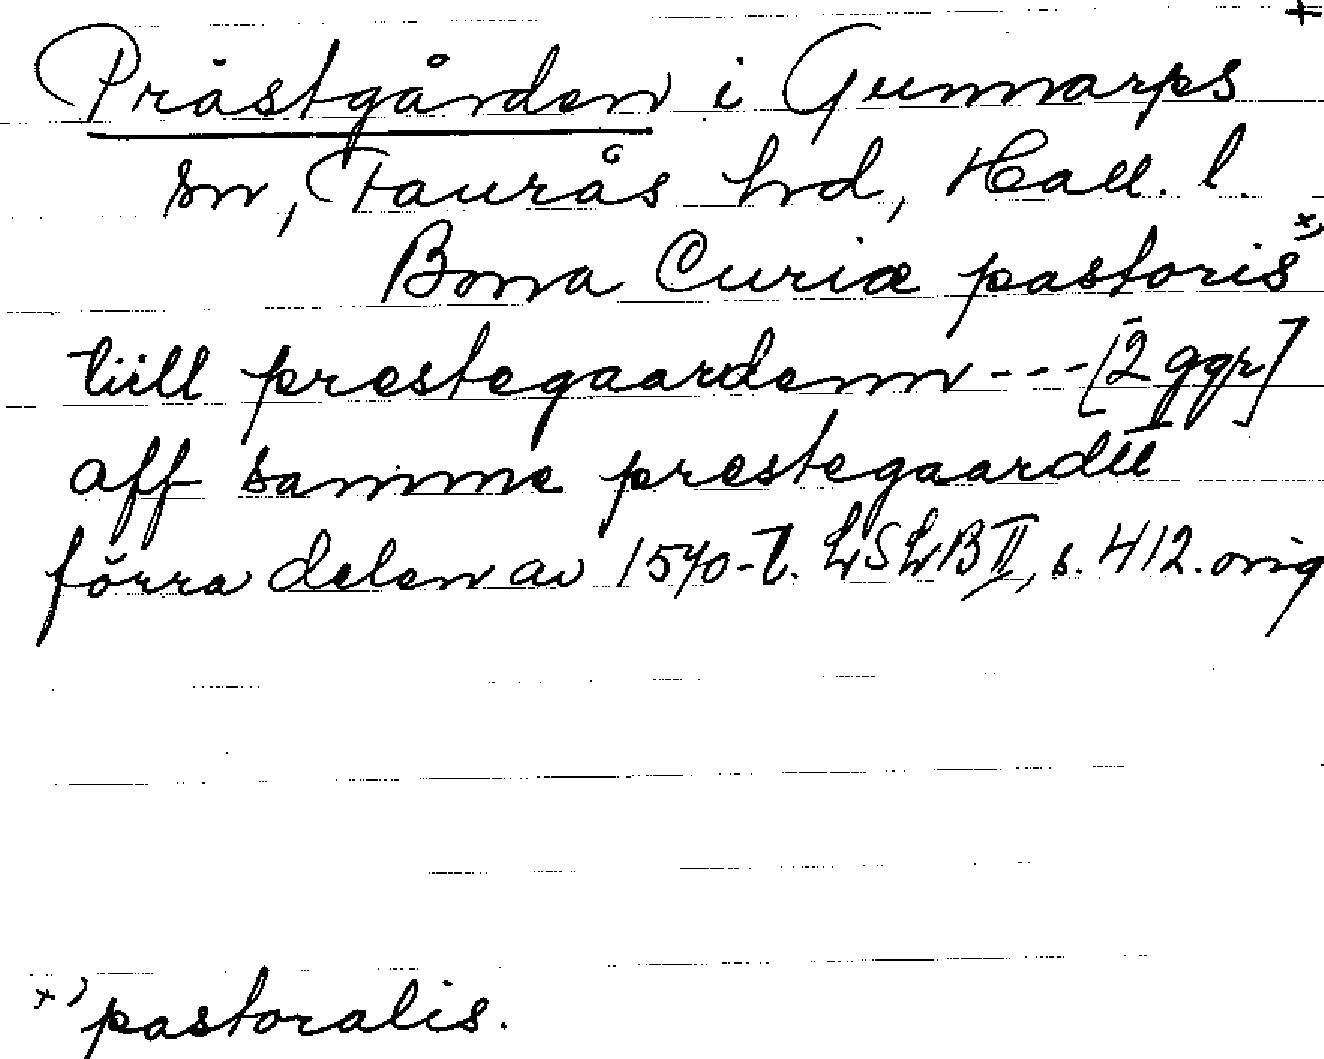 +
Prästgården i Gunnarps
sn, Faurås hrd, Hall. l.
Bona Curiæ pastoris x)
tiill prestegaardenn --- [2 ggr]
aff samme prestegaardtt
förra delen av 1570-t. LSLB II, s. 412. orig
x) pastoralis.